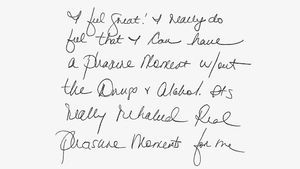 I feel great! I really do
feel that I can have
a pleasure Moment w/out
the Drugs & Alcohol. Its
really Real
pleasure Moments for me